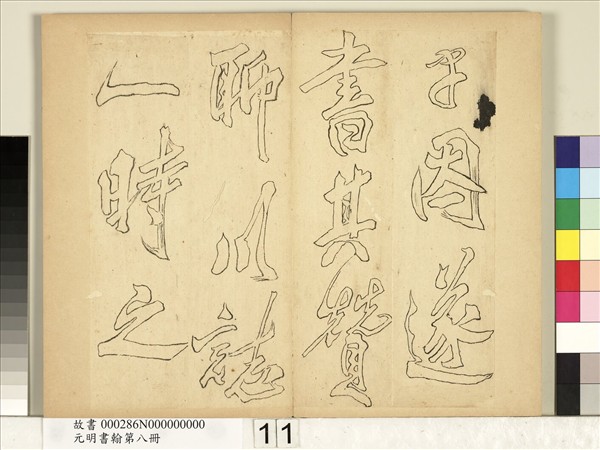 子因遂
書其贊
聊以誌
一時之
故書 000286N000000000
元明書翰第八冊
11